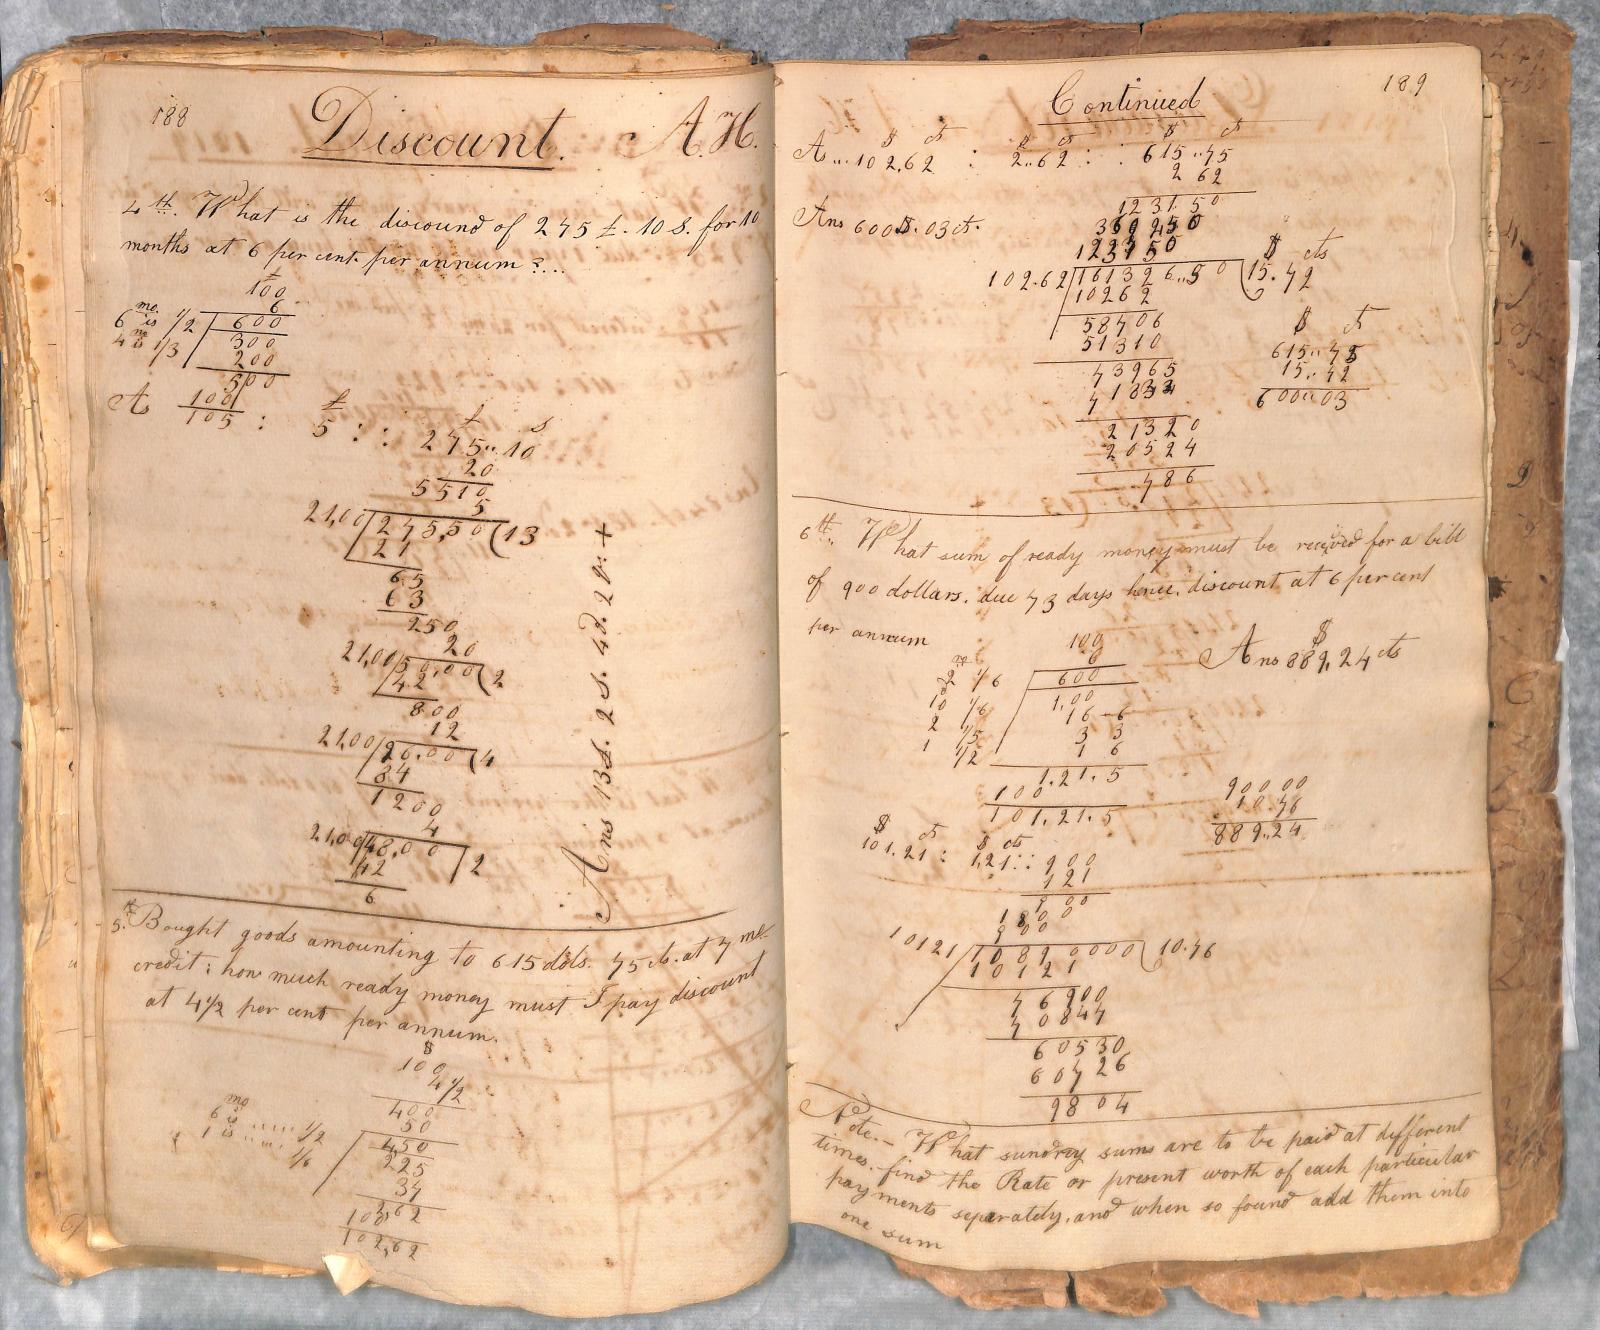 188
Discount. A.H.
4th. What is the discound of 275 £. 10 S. for 10
months at 6 per cent. per annum?...
100
6
mo.
6 is 1/2 600
mo
4 is 1/3 300
200
500
A 100
105 : 5 : : 275..10
£ £ s
20
5510
5
21,00 275,50 (13
21
65
63
250
20
21,00 50,00 (2
42
800
12
21,00 96,00 (4
84
1200
4
21,00 48,00 2
42
6
Ans 13£. 2s. 4d. 2qr. +
5th. Bought goods amounting to 615 dols. 75 cts. at 7 mo.
credit; how much ready money must I pay discount
at 4 1/2 per cent per annum.
$
100
4 1/2
400
50
mo
6 is ..... 1/2 450
1 is ..... 1/6 225
37
2,62
100
102,62
Continued 189
$ ct $ ct $ ct
As...102,62 : 2..62 : : 615..75
2 62
123150
Ans 600$. 03ct. 369450
123150
$ cts
102.62 161326..50 (15.72
10262
58706
51310
73965
71834
21320
20524
786
$ ct
615..75
15..72
600..03
6th. What sum of ready money must be received for a bill
of 900 dollars. due 73 days hence, discount at 6 per cent
per annum
$
Ans 889,24 cts
100
6
m
2 1/6 600
d
10 1/6 1,00
2 1/5 16 6
1 1/2 3 3
1 6
1.21.5
100
101.21.5
90000
10.76
889..24
$ ct $ cts
101.21 : 1,21 :: 900
121
900
1800
900
10121 1089 0000 10.76
10121
76900
70847
60530
60726
9804
Note.- What sundry sums are to be paid at different
times, find the Rate or present worth of each particular
payments seperately, and when so found add them into
one sum